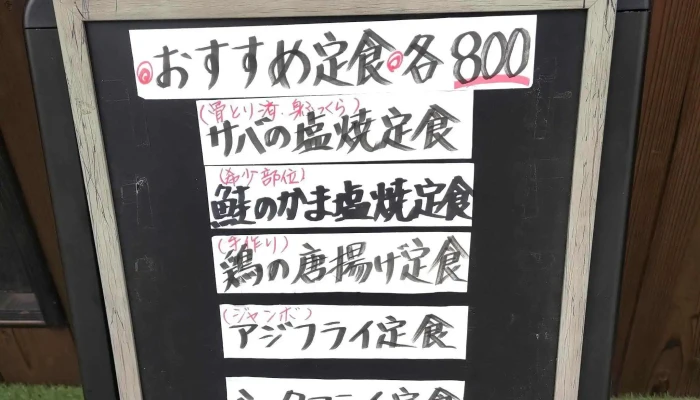 おすすめ定食 各800
(骨とり済・身ふっくら)
サバの塩焼定食
(希少部位)
鮭のかま塩焼定食
(手作り)
鶏の唐揚げ定食
(ジャンボ)
アジフライ定食